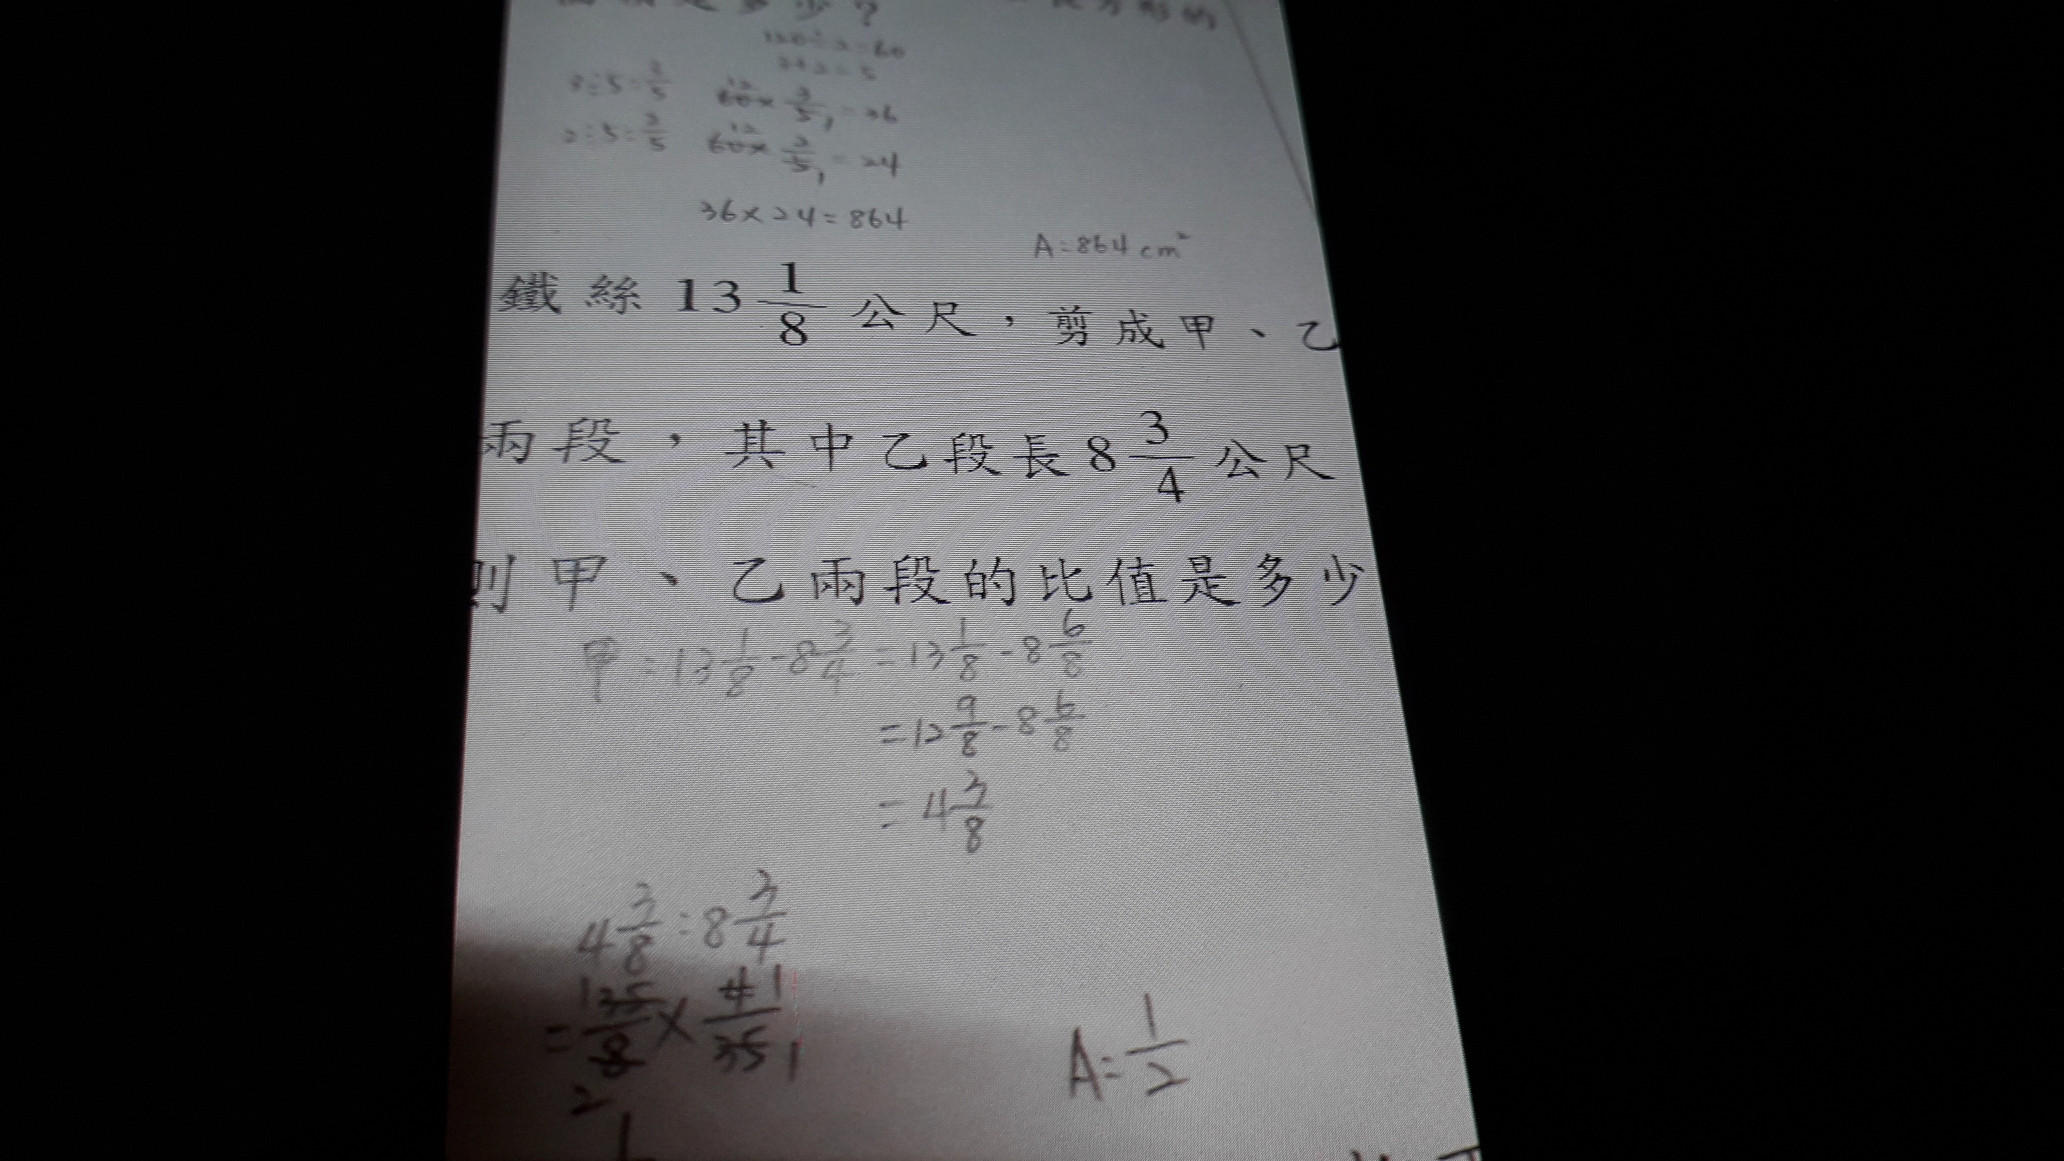 是多少？
120÷2=60
3+2=5
3÷5=3/5 60×3/5=36
2÷5=2/5 60×2/5=24
36×24=864
A=864cm²
鐵絲13 1/8公尺，剪成甲、乙
兩段，其中乙段長8 3/4公尺
則甲、乙兩段的比值是多少
甲=13 1/8-8 3/4=13 1/8-8 6/8
=12 9/8-8 6/8
=4 3/8
4 3/8:8 3/4
=35/8×4/35
A=1/2